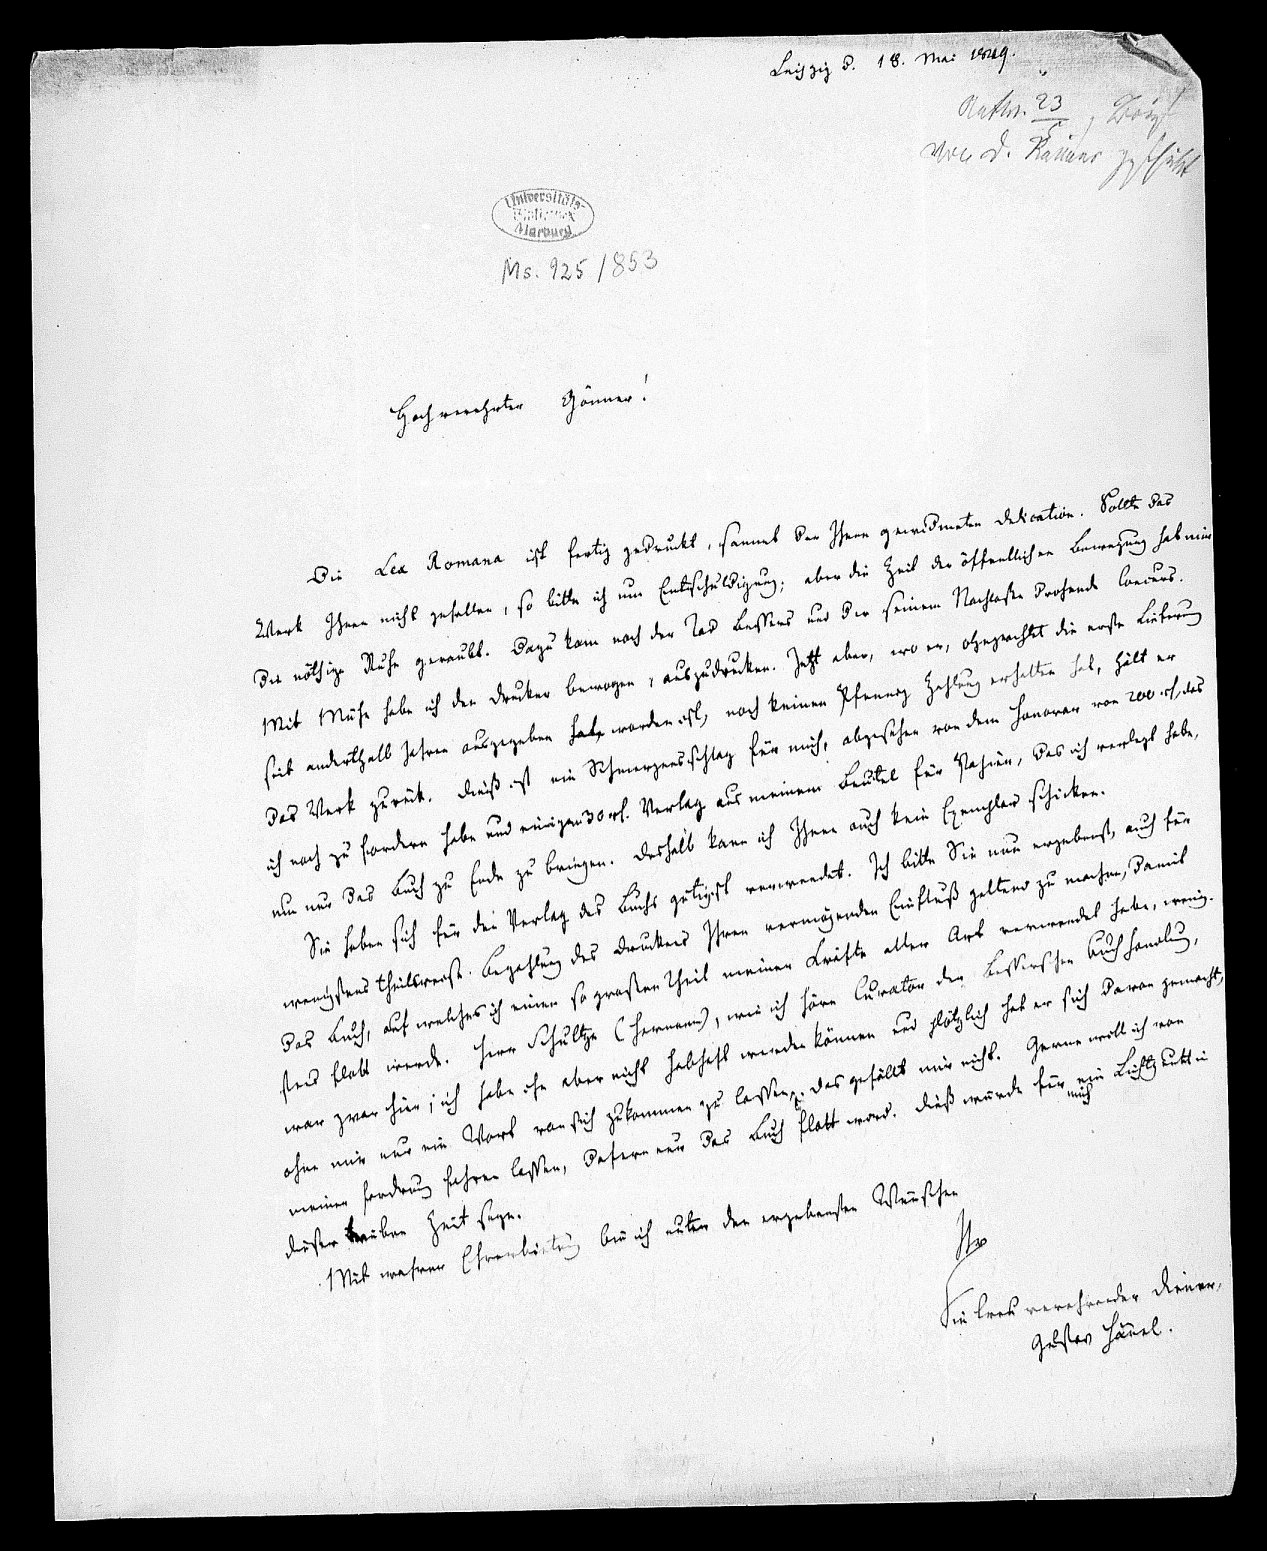 Leipzig d. 18. Mai 1849.
Antw. 23/5
von d.
Universitäts-
Bibliothek
Marburg
Ms. 925/853
Hochverehrter Gönner!
Die Lex Romana ist fertig gedruckt, sammt der Ihnen gewidmeten Dedication. Sollte das
Werk Ihnen nicht gefallen, so bitte ich um Entschuldigung; aber die Zeit der öffentlichen Bewegung hat mir
die nöthige Ruhe geraubt. Dazu kam noch der Tod Bessers und der seinem Nachlasse drohende Concurs.
Mit Mühe habe ich den Drucker bewogen, auszudrucken. Jetzt aber, wo er, ohngeachtet die erste Lieferung
seit anderthalb Jahren ausgegeben worden ist, noch keinen Pfennig Zahlung erhalten hat, hält er
das Werk zurück. Dieß ist ein Schmerzensschlag für mich, abgesehen von dem Honorar von 200 rh, das
ich noch zu fordern habe und einigen 30 rh. Verlag aus meinem Beutel für Papier, das ich verlegt habe,
um nur das Buch zu Ende zu bringen. Deshalb kann ich Ihnen auch kein Exemplar schicken.
Sie haben sich für den Verlag des Buchs gütigst verwendet. Ich bitte Sie nun ergebenst, auch für
wenigstens theilweise Bezahlung des Druckers Ihren vermögenden Einfluß geltend zu machen, damit
das Buch, auf welches ich einen so großen Theil meiner Kräfte aller Art verwendet habe, wenig-
stens flott werde. Herr Schultze (Hermann), wie ich höre Curator der Besserschen Buchhandlung,
war zwar hier; ich habe ihn aber nicht habhaft werden können und plötzlich hat er sich davon gemacht,
ohne mir nur ein Wort von sich zukommen zu lassen. Das gefällt mir nicht. Gerne wollt ich von
meiner Fordrung fahren lassen, dafern nur das Buch flott word. Dieß würde für mich ein Lichtpunkt in
dieser trüben Zeit seyn.
Mit wahrer Ehrerbietung bin ich unter den ergebensten Wünschen
Ihr
Sie treu verehrender Diener,
Gustav Hänel.